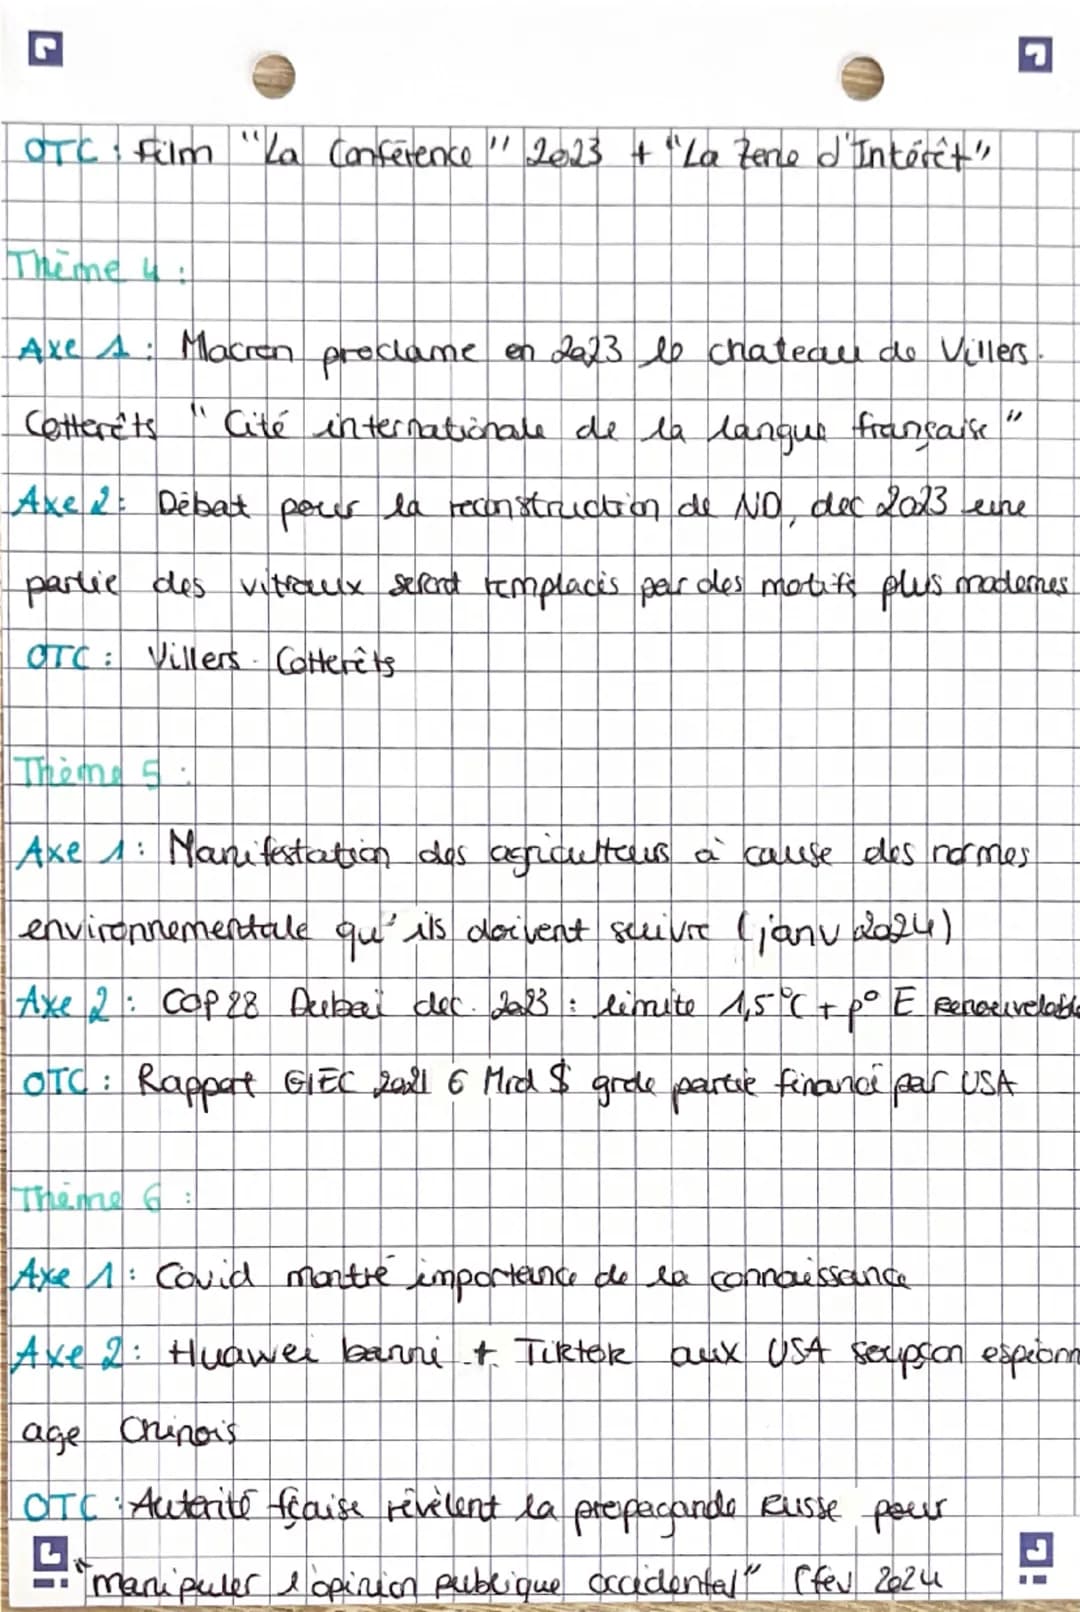 OTC : Film "La Conférence" 2023 + "La Zone d'Intérêt"
Thème 4 :
Axe 1 : Macron proclame en 2023 le chateau de Villers-
Cotterêts "Cité internationale de la langue française"
Axe 2 : Débat pour la reconstruction de ND, dec 2023 une
partie des vitraux seront remplacés par des motifs plus modernes
OTC : Villers-Cotterêts
Thème 5 :
Axe 1 : Manifestation des agriculteurs à cause des normes
environnementale qu'ils doivent suivre (janv 2024)
Axe 2 : COP 28 Dubaï dec. 2023 : limite 1,5°C + p° E renouvelable
OTC : Rapport GIEC 2021 6 Mrd $ grde partie financé par USA
Thème 6 :
Axe 1 : Covid montré importance de la connaissance
Axe 2 : Huawei banni + Tiktok aux USA soupçon espionn
age Chinois
OTC : Autorité fçaise révèlent la propagande Russe pour
"manipuler l'opinion publique occidental" (fev 2024